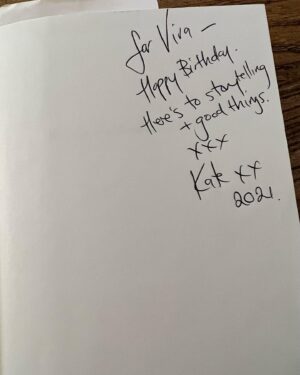 for Viva –
Happy Birthday.
Here's to storytelling
+ good things.
xxx
Kate xx
2021.